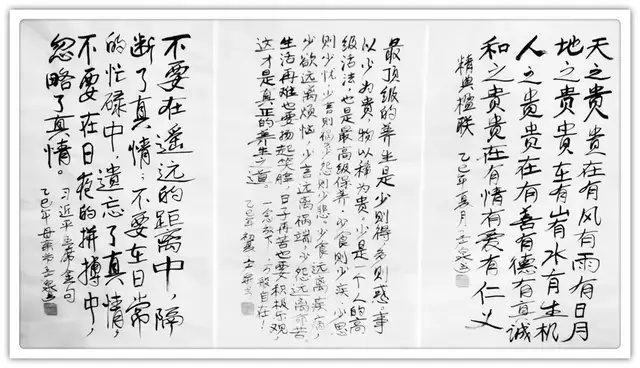 天之贵贵在有风有雨有日月
地之贵贵在有岩有水有生机
人之贵贵在有善有德有真诚
和之贵贵在有情有爱有仁义
精典楹联 乙巳年
最顶级的养生是少则得多则惑,事
以少为贵,物以稀为贵,少是一个人的高
级活法,也是最高级保养,少食则少疾,少思
则少忧,少言则少,少怨则少悲,少食远离疾病,
少欲远离烦恼,少言远离祸端,少怨远离苦,
生活再难也要扬起笑脸,日子再苦也要积极乐观,
这才是真正的养生之道。 一念放下,万般自在!
乙巳初夏
不要在遥远的距离中,隔
断了真情;不要在日常
的忙碌中,遗忘了真情,
不要在日夜的拼搏中,
忽略了真情。
习近平主席金句
乙巳年母亲节